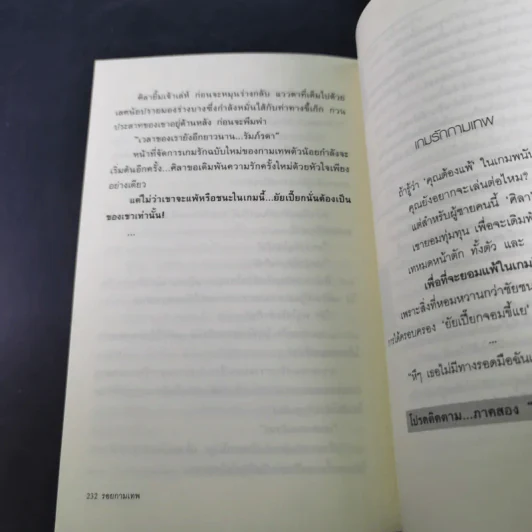 ศิลายิ้มเจ้าเล่ห์ ก่อนจะหมุนร่างกลับ แววตาที่เต็มไปด้วย
เลศนัยปรายมองร่างบางซึ่งกำลังหมั่นไส้กับท่าทางขี้เก๊ก กวน
ประสาทของเขาอยู่ด้านหลัง ก่อนจะพึมพำ
"เวลาของเรายังอีกยาวนาน...รัมภ์รดา"
หน้าที่จัดการเกมรักฉบับใหม่ของกามเทพตัวน้อยกำลังจะ
เริ่มต้นอีกครั้ง...ศิลาขอเดิมพันความรักครั้งใหม่ด้วยหัวใจเพียง
อย่างเดียว
แต่ไม่ว่าเขาจะแพ้หรือชนะในเกมนี้...ยัยเปี๊ยกนั่นต้องเป็น
ของเขาเท่านั้น!
...
232 รอยกามเทพ
เกมรักกามเทพ
ถ้ารู้ว่า 'คุณต้องแพ้' ในเกมพนัน
คุณยังอยากจะเล่นต่อไหม?
แต่สำหรับผู้ชายคนนี้ 'ศิลา'
เขายอมทุ่มทุน เพื่อจะเดิมพัน
เทหมดหน้าตัก ทั้งตัว และ
เพื่อที่จะยอมแพ้ในเกม
เพราะสิ่งที่หอมหวานกว่าชัยชน
การได้ครอบครอง 'ยัยเปี๊ยกจอมขี้แย'
...
"หึๆ เธอไม่มีทางรอดมือฉัน
โปรดติดตาม...ภาคสอง